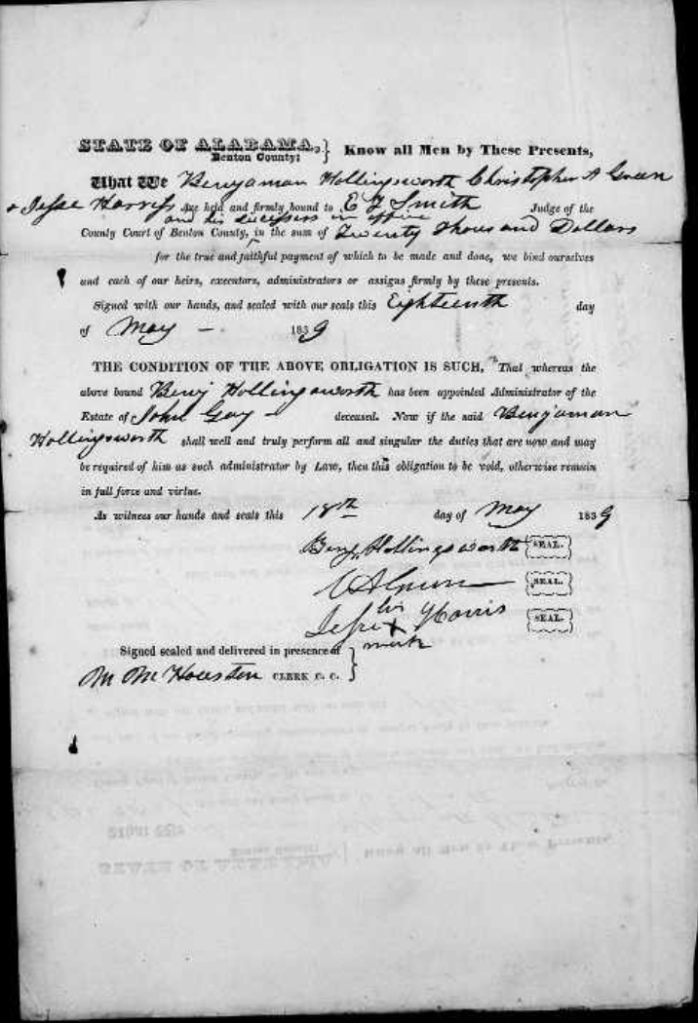 STATE OF ALABAMA, } Know all Men by These Presents,
Benton County:
That We Benjaman Hollingsworth Christopher A Green
& Jesse Harriss Are held and firmly bound to E T Smith Judge of the
and his successors in office
County Court of Benton County, in the sum of Twenty Thousand Dollars
for the true and faithful payment of which to be made and done, we bind ourselves
and each of our heirs, executors, administrators or assigns firmly by these presents.
Signed with our hands, and sealed with our seals this Eighteenth day
of May - 1839
THE CONDITION OF THE ABOVE OBLIGATION IS SUCH, That whereas the
above bound Benj Hollingsworth has been appointed Administrator of the
Estate of John Gay - deceased. Now if the said Benjaman
Hollingsworth shall well and truly perform all and singular the duties that are now and may
be required of him as such administrator by Law, then this obligation to be void, otherwise remain
in full force and virtue.
As witness our hands and seals this 18th day of May 1839
Benj Hollingsworth SEAL.
C A Green SEAL.
his
Jesse X Harris SEAL.
mark
Signed sealed and delivered in presence of }
M M Houston CLERK C. C.